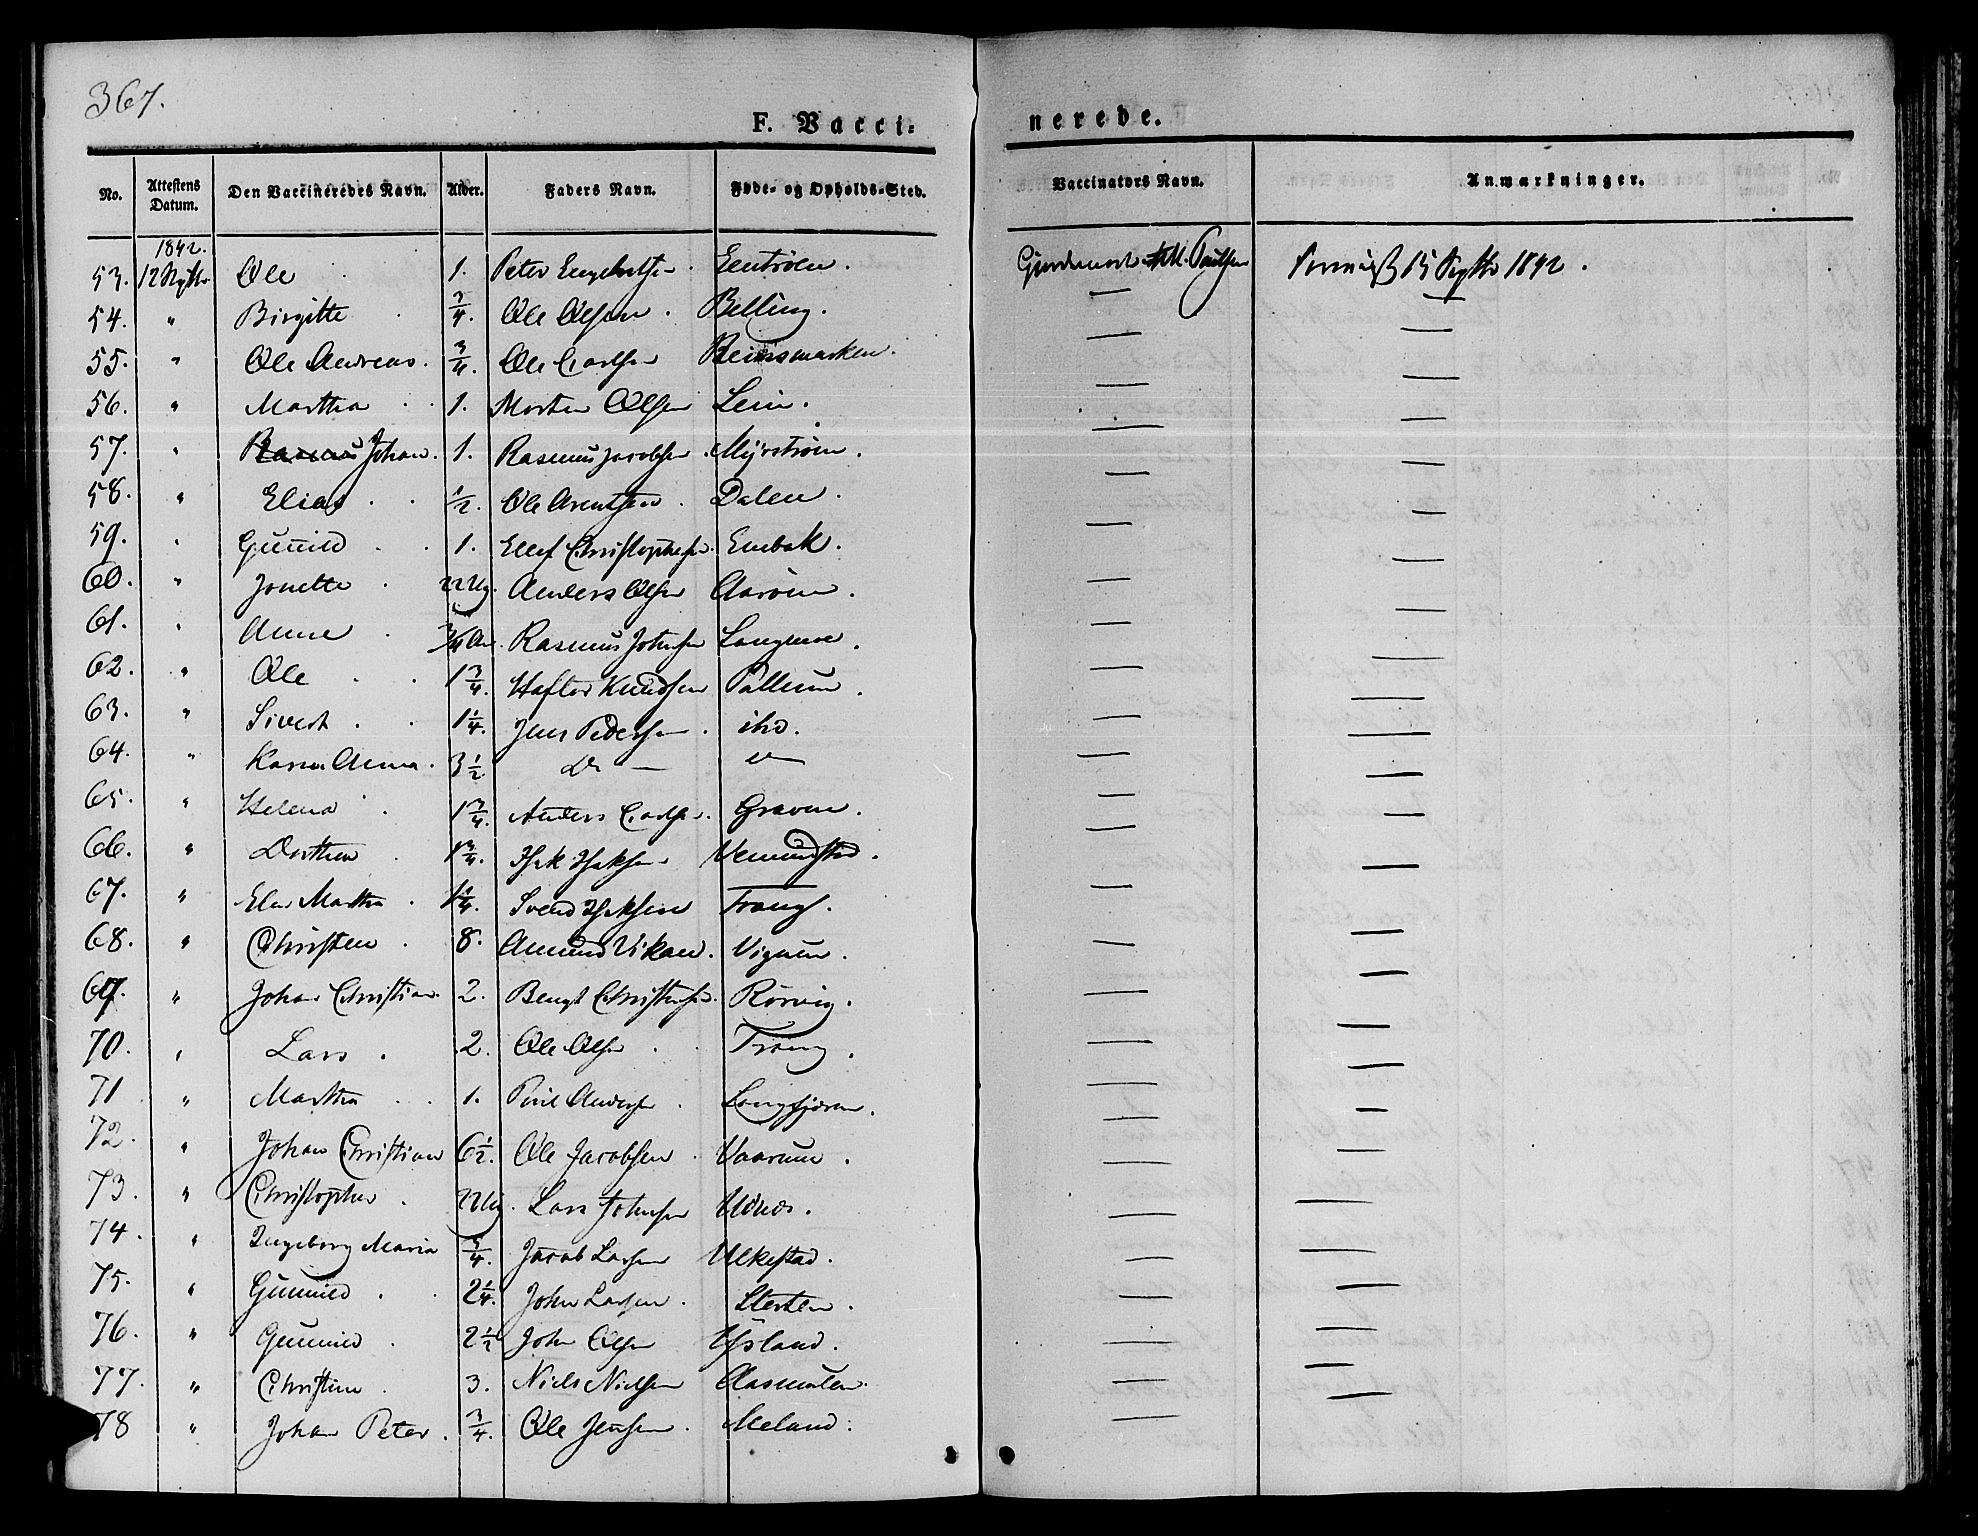 367.
F. Vacci= nerede.
No. Attestens Datum. Den Vaccineredes Navn. Alder. Faders Navn. Føde- og Opholds-Sted. Vaccinators Navn. Anmærkninger.
1842.
53. 12 Septbr. Ole 1. Peter Engebretsen 15 Septbr 1842.
54. " Birgitte 3/4. Ole Olsen. Belling. — —
55. " Ole Andreas. 3/4. Ole Carlsen — —
56. " Martha 1. Morten Olsen Lein. — —
57. " Rasmus Johan. 1. Rasmus Jacobsen. Myrstrøen. — —
58. " Elias 1/2. Ole Arentsen. Dalen. — —
59. " Gunnild 1. Ellef Christophersen. — —
60. " Jonette 22 Ug. Anders Olsen Aarøen. — —
61. " Anne 3/4 Aar. Rasmus Johnsen — —
62. " Ole 1 3/4. Haftor Knudsen — —
63. " Sivert 1 1/4. Jens Pedersen. ibd. — —
64. " Karen Anna. 3 1/2 Do — " — —
65. " Helena 1 3/4. Anders Carlsen. Graven. — —
66. " Dorthea 1 3/4. Isak Isaksen Vemundstad. — —
67. " Elen Martha 1 1/4. Svend Isaksen — —
68. " Christen 8. Amund Vikan. — —
69. " Johan Christian. 2. Bengt Christensen. Rørvig. — —
70. " Lars. 2. Ole Olsen — —
71 " Martha 1. Poul Andersen — —
72. " Johan Christian 6 1/2. Ole Jacobsen Vaarum. — —
73. " Christopher. 22 Ug. Lars Johnsen — —
74. " Ingeborg Maria 3/4. Jacob Larsen Ulkestad. — —
75. " Gunnild. 2 1/4. John Larsen. Sterten. — —
76. " Gunnild 2 1/2 John Olsen Ysland. — —
77. " Christine 3. Niels Nielsen Aasmulen. — —
78 " Johan Peter. 3/4. Ole Jensen Meland. —